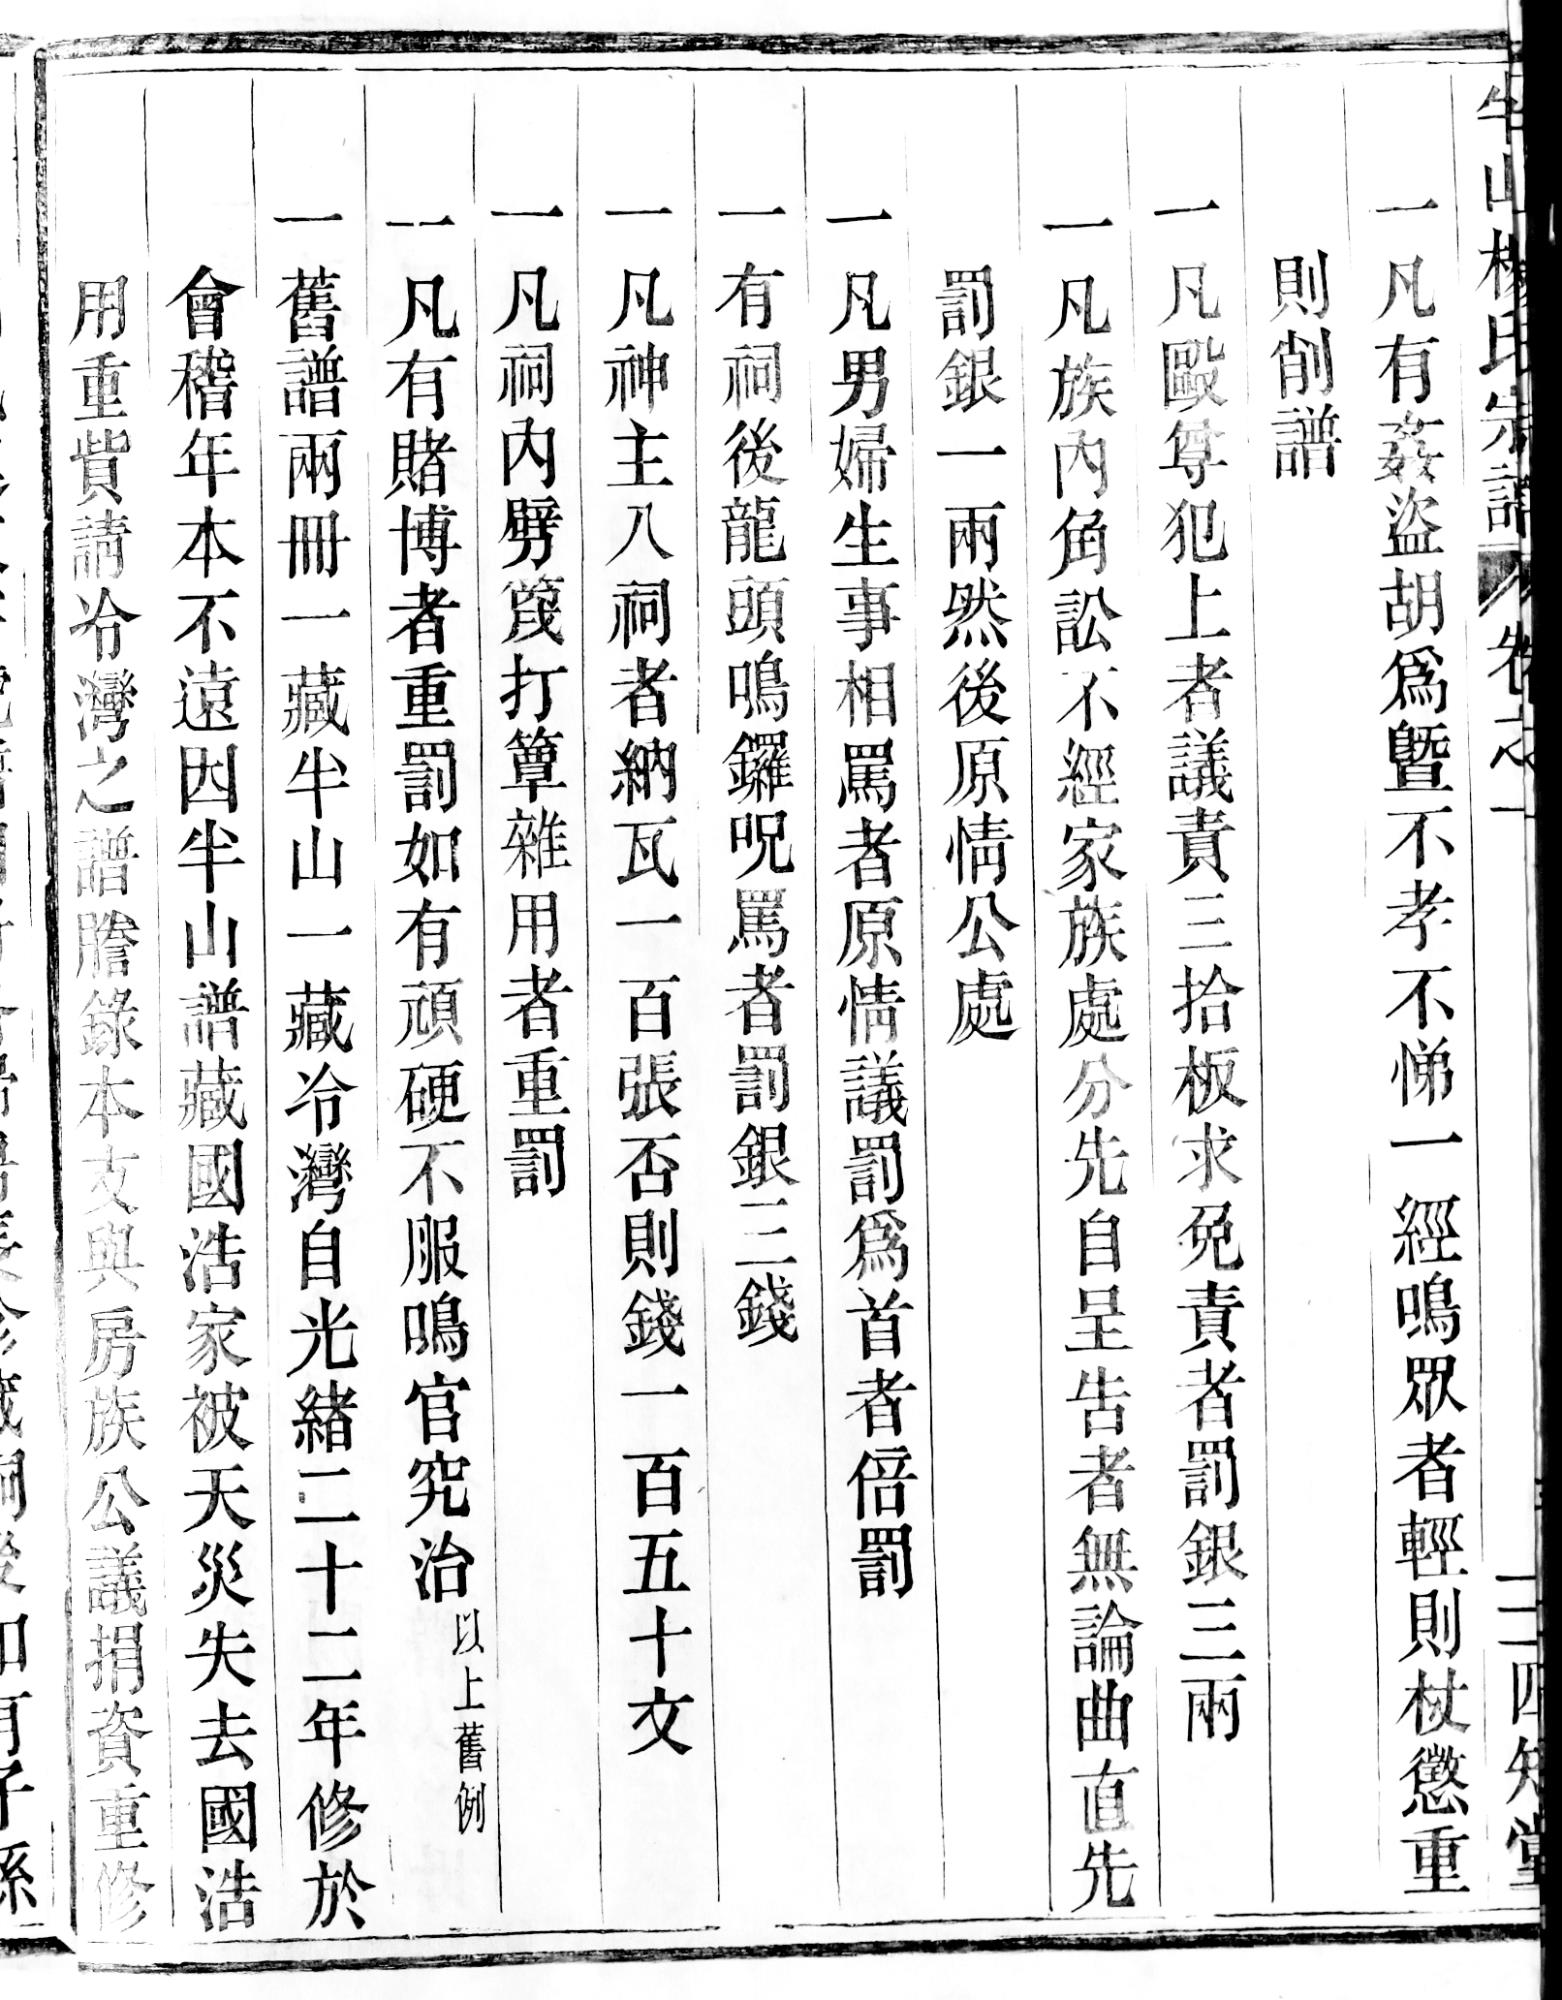 半山楊氏宗譜 卷之一 四知堂
一凡有姦盜胡爲曁不孝不悌一經鳴眾者輕則杖懲重
則削譜
一凡毆尊犯上者議責三拾板求免責者罰銀三兩
一凡族內角訟不經家族處分先自呈告者無論曲直先
罰銀一兩然後原情公處
一凡男婦生事相罵者原情議罰爲首者倍罰
一有祠後龍頭鳴鑼呪罵者罰銀三錢
一凡神主入祠者納瓦一百張否則錢一百五十文
一凡祠內劈篾打簟雜用者重罰
一凡有賭博者重罰如有頑硬不服鳴官究治以上舊例
一舊譜兩冊一藏半山一藏冷灣自光緒二十二年修於
會稽年本不遠因半山譜藏國浩家被天災失去國浩
用重貲請冷灣之譜謄錄本支與房族公議捐資重修